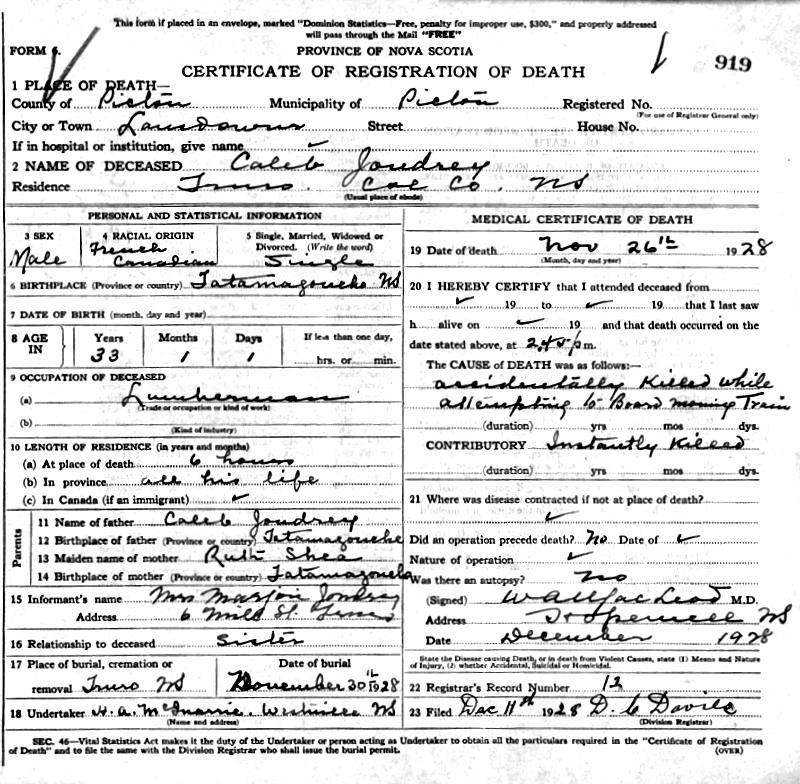 This form if placed in an envelope, marked "Dominion Statistics—Free, penalty for improper use, $300," and properly addressed
will pass through the Mail "FREE"
FORM 6.
PROVINCE OF NOVA SCOTIA
CERTIFICATE OF REGISTRATION OF DEATH
919
1 PLACE OF DEATH—
County of Pictou Municipality of Pictou Registered No.
(For use of Registrar General only)
City or Town Lansdowne Street House No.
If in hospital or institution, give name
2 NAME OF DECEASED Caleb Joudrey
Residence Truro. Col Co. NS
(Usual place of abode)
PERSONAL AND STATISTICAL INFORMATION
3 SEX 4 RACIAL ORIGIN 5 Single, Married, Widowed or Divorced. (Write the word)
Male French Canadian Single
6 BIRTHPLACE (Province or country) Tatamagouche NS
7 DATE OF BIRTH (month, day and year)
8 AGE IN Years Months Days If less than one day,
33 1 1 hrs. or min.
9 OCCUPATION OF DECEASED
(a) Lumberman
(Trade or occupation or kind of work)
(b)
(Kind of industry)
10 LENGTH OF RESIDENCE (in years and months)
(a) At place of death 6 hours
(b) In province all his life
(c) In Canada (if an immigrant)
Parents
11 Name of father Caleb Joudrey
12 Birthplace of father (Province or country) Tatamagouche
13 Maiden name of mother Ruth Shea
14 Birthplace of mother (Province or country) Tatamagouche
15 Informant's name Mrs Joudrey
Address 6 St.
16 Relationship to deceased Sister
17 Place of burial, cremation or Date of burial
removal Truro NS November 30th 1928
18 Undertaker H. A. Westville NS
(Name and address)
MEDICAL CERTIFICATE OF DEATH
19 Date of death Nov 26th 1928
(Month, day and year)
20 I HEREBY CERTIFY that I attended deceased from
19 to 19 that I last saw
h alive on 19 and that death occurred on the
date stated above, at 2.45 p m.
The CAUSE of DEATH was as follows:—
accidentally Killed while
attempting to Board moving Train
(duration) yrs mos dys.
CONTRIBUTORY Instantly Killed
(duration) yrs mos dys.
21 Where was disease contracted if not at place of death?
Did an operation precede death? No Date of
Nature of operation
Was there an autopsy? No
(Signed) MacLeod M.D.
Address Hopewell NS
Date December 1928
State the Disease causing Death, or in death from Violent Causes, state (1) Means and Nature
of Injury, (2) whether Accidental, Suicidal or Homicidal.
22 Registrar's Record Number 12
23 Filed Dec 11th 1928 D. C Davile
(Division Registrar)
SEC. 46—Vital Statistics Act makes it the duty of the Undertaker or person acting as Undertaker to obtain all the particulars required in the "Certificate of Registration
of Death" and to file the same with the Division Registrar who shall issue the burial permit.
(OVER)